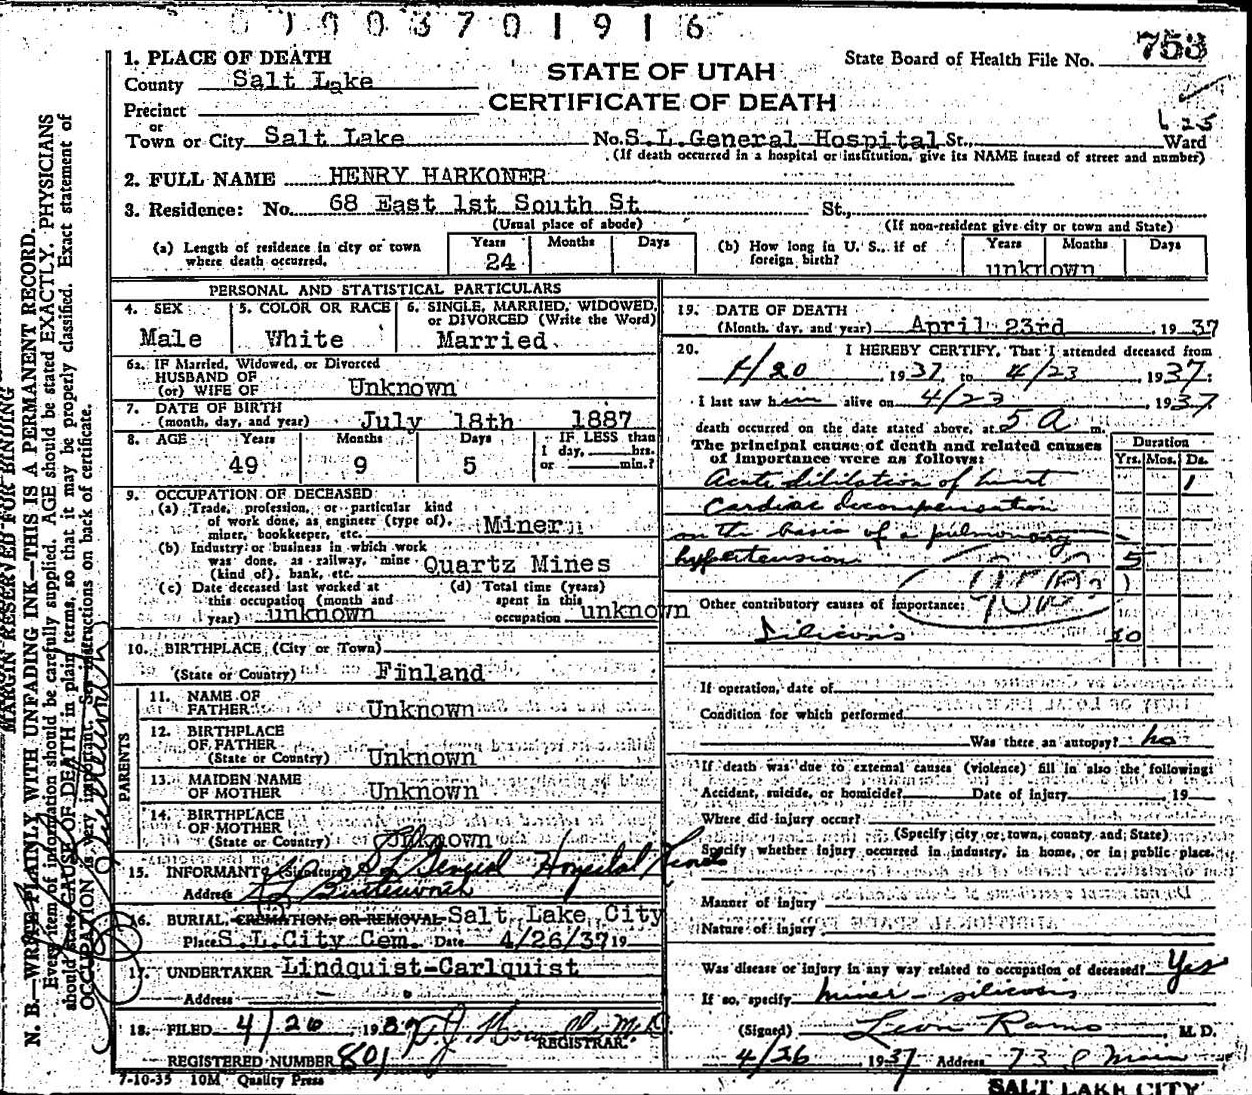 0 1 0 0 3 7 0 1 9 1 6
1. PLACE OF DEATH
County Salt Lake
Precinct
or
Town or City Salt Lake No. S.L. General Hospital St., Ward
(If death occurred in a hospital or institution, give its NAME instead of street and number)
STATE OF UTAH
CERTIFICATE OF DEATH
State Board of Health File No. 753
2. FULL NAME HENRY HARKONER
3. Residence: No. 68 East 1st South St St.,
(Usual place of abode) (If non-resident give city or town and State)
(a) Length of residence in city or town where death occurred. Years 24 Months Days
(b) How long in U. S., if of foreign birth? Years Months Days unknown
PERSONAL AND STATISTICAL PARTICULARS
4. SEX Male
5. COLOR OR RACE White
6. SINGLE, MARRIED, WIDOWED, or DIVORCED (Write the Word) Married
6a. IF Married, Widowed, or Divorced
HUSBAND OF
(or) WIFE OF Unknown
7. DATE OF BIRTH
(month, day, and year) July 18th 1887
8. AGE Years 49 Months 9 Days 5 IF LESS than 1 day, hrs. or min.?
9. OCCUPATION OF DECEASED
(a) Trade, profession, or particular kind of work done, as engineer (type of), miner, bookkeeper, etc. Miner
(b) Industry or business in which work was done, as railway, mine (kind of), bank, etc. Quartz Mines
(c) Date deceased last worked at this occupation (month and year) unknown
(d) Total time (years) spent in this occupation unknown
10. BIRTHPLACE (City or Town)
(State or Country) Finland
PARENTS
11. NAME OF FATHER Unknown
12. BIRTHPLACE OF FATHER
(State or Country) Unknown
13. MAIDEN NAME OF MOTHER Unknown
14. BIRTHPLACE OF MOTHER
(State or Country) Unknown
15. INFORMANT (Signature) SL General Hospital
Address Butterworth
16. BURIAL, CREMATION OR REMOVAL Salt Lake City
Place S.L. City Cem. Date 4/26/37 19
17. UNDERTAKER Lindquist-Carlquist
Address
18. FILED 4/26, 1937 M.D.
REGISTRAR.
REGISTERED NUMBER 801
7-10-35 10M Quality Press
19. DATE OF DEATH
(Month, day, and year) April 23rd 1937
20. I HEREBY CERTIFY, That I attended deceased from
4/20, 1937 to 4/23, 1937:
I last saw him alive on 4/23, 1937
death occurred on the date stated above, at 5 A m.
The principal cause of death and related causes of importance were as follows: Duration Yrs. Mos. Ds.
Acute dilitation of heart 1
Cardiac decompensation
on the basis of a pulmonary
hypertension 5
Other contributory causes of importance:
Silicosis 10
If operation, date of
Condition for which performed
Was there an autopsy? no
If death was due to external causes (violence) fill in also the following:
Accident, suicide, or homicide? Date of injury 19
Where did injury occur?
(Specify city or town, county and State)
Specify whether injury occurred in industry, in home, or in public place.
Manner of injury
Nature of injury
Was disease or injury in any way related to occupation of deceased? Yes
If so, specify miner - silicosis
(Signed) Leon M. D.
4/26 1937 Address 73 Main
SALT LAKE CITY
MARGIN RESERVED FOR BINDING
N. B.—WRITE PLAINLY WITH UNFADING INK—THIS IS A PERMANENT RECORD.
Every item of information should be carefully supplied. AGE should be stated EXACTLY. PHYSICIANS
should state CAUSE OF DEATH in plain terms, so that it may be properly classified. Exact statement of
OCCUPATION is very important. See instructions on back of certificate.